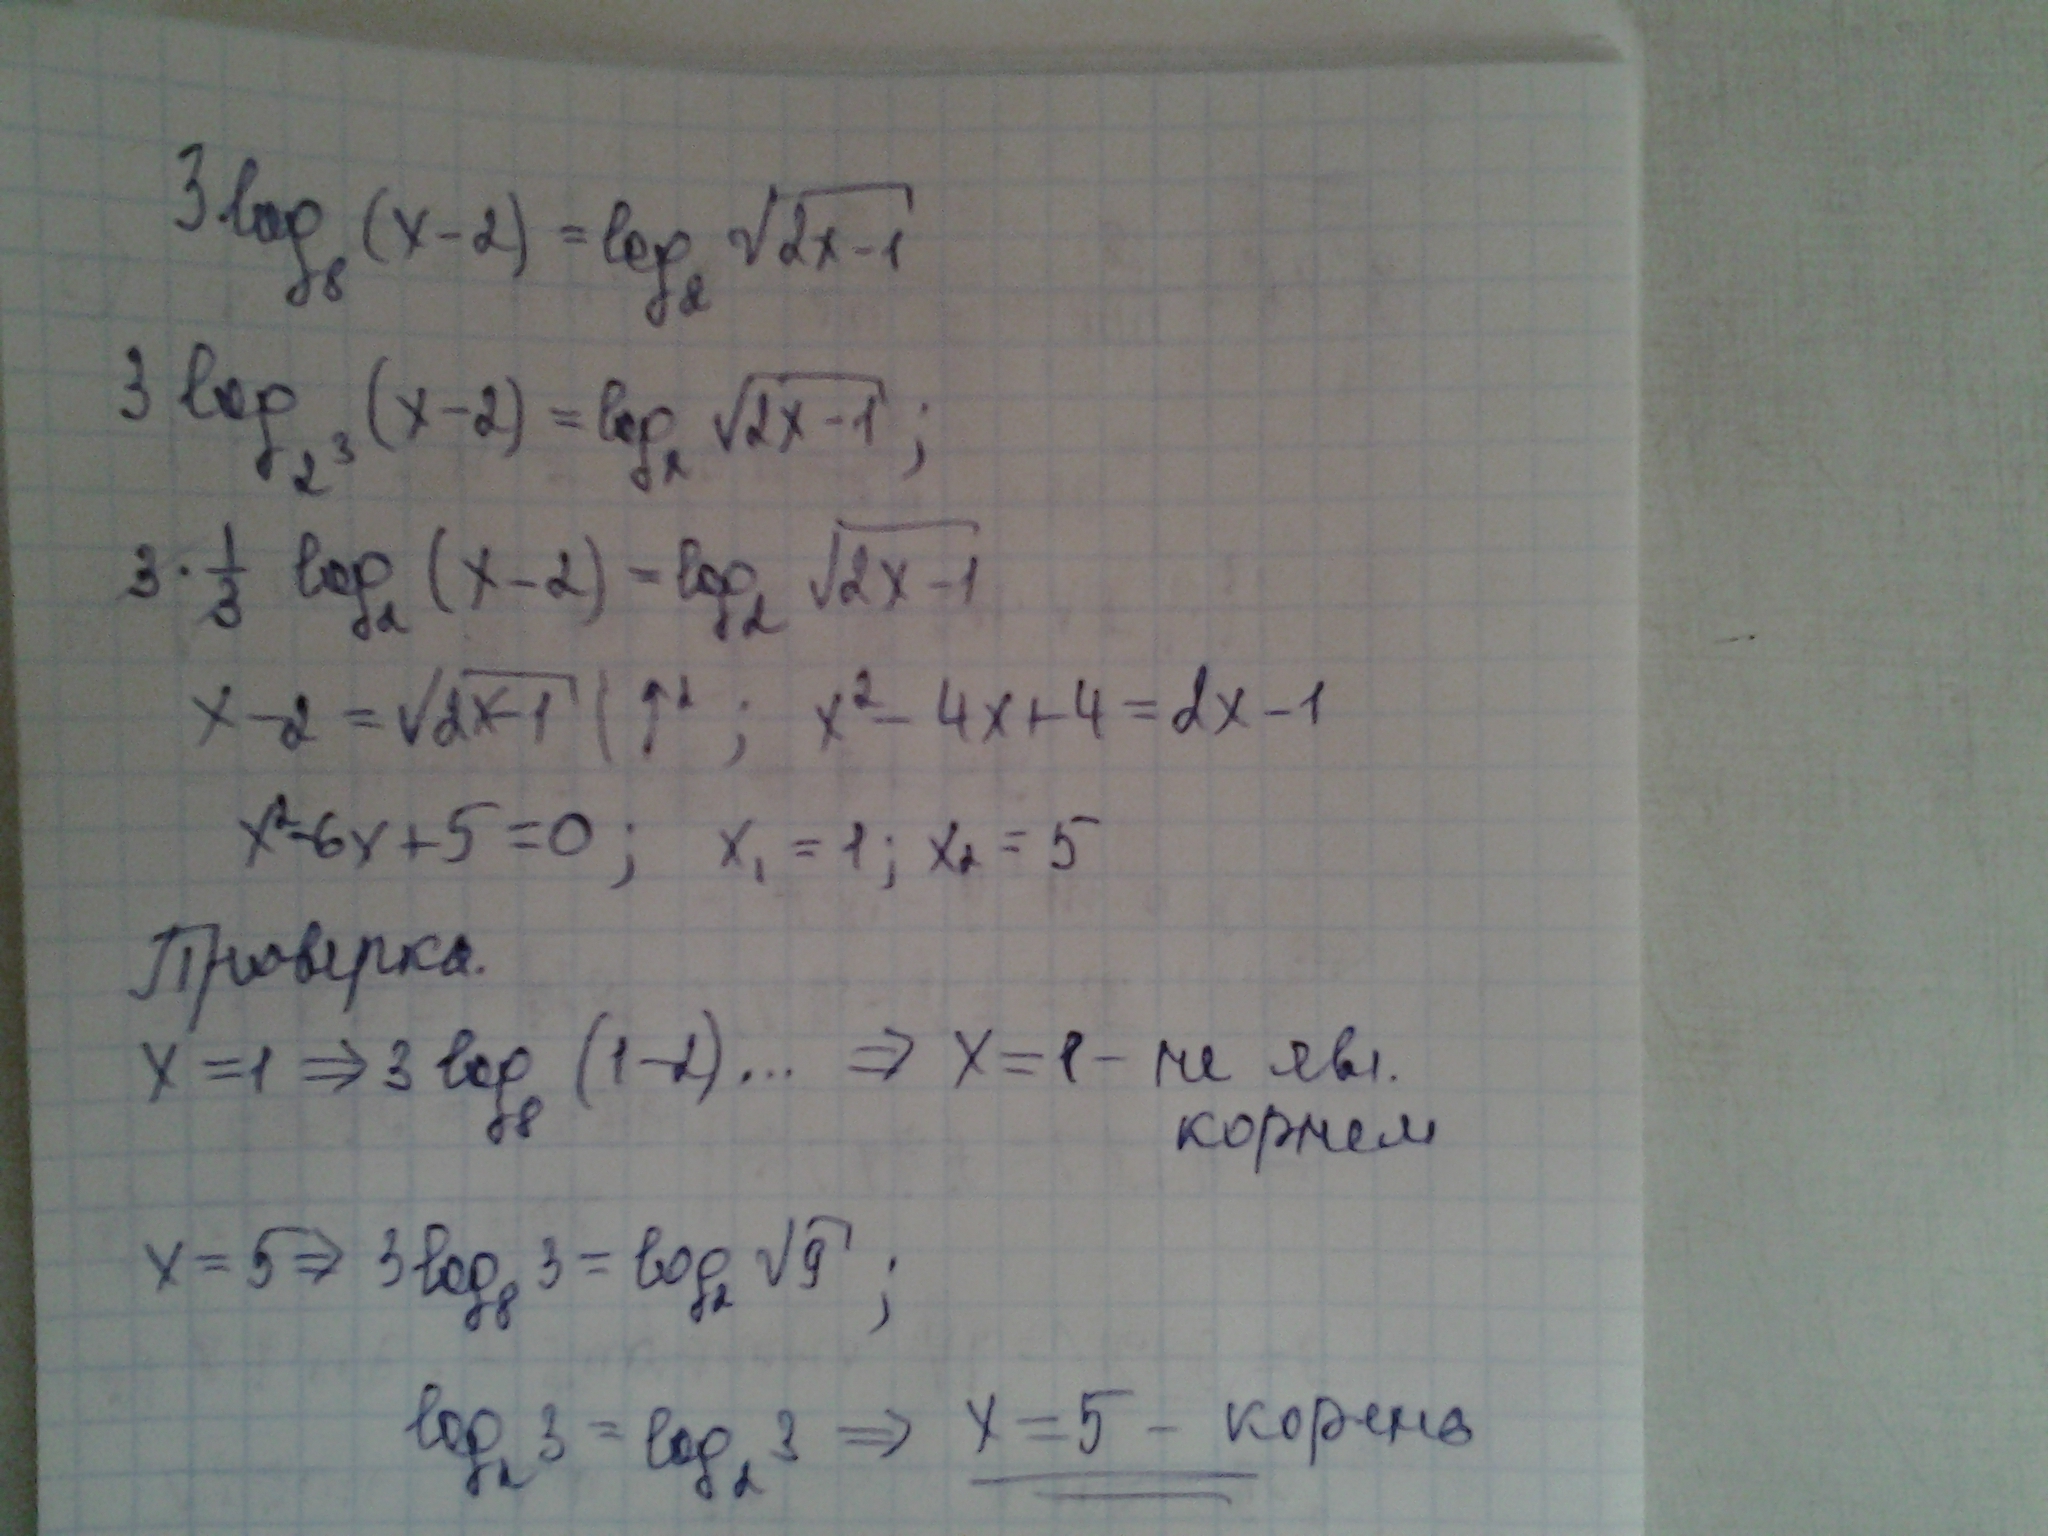 3log₈(x-2)=log₂√(2x-1)
3log₂³(x-2)=log₂√(2x-1);
3·1/3 log₂(x-2)=log₂√(2x-1)
x-2=√(2x-1) |↑²; x²-4x+4=2x-1
x²-6x+5=0; x₁=1; x₂=5
Проверка.
x=1⇒3log₈(1-2)... ⇒ x=1- не явл.
корнем
x=5⇒ 3log₈3=log₂√9;
log₂3=log₂3 ⇒ x=5- корень